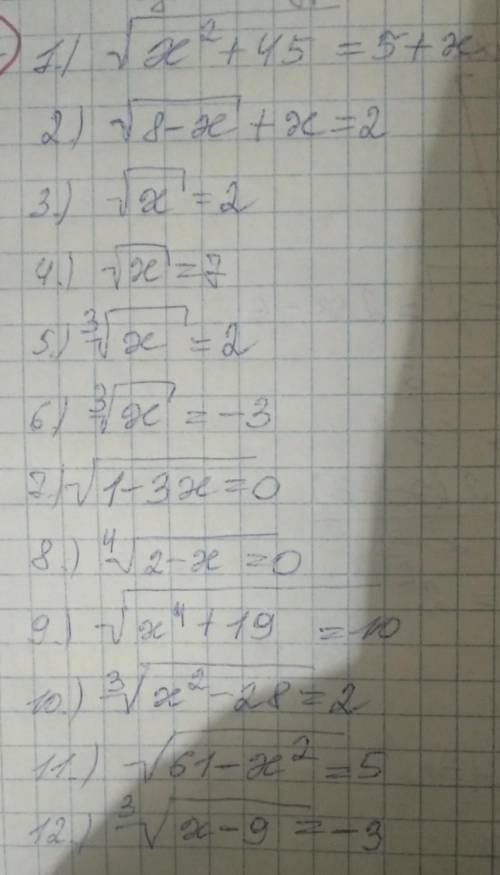 1.) √x²+45 = 5+x
2.) √8-x + x = 2
3.) √x = 2
4.) √x = 7
5.) ³√x = 2
6.) ³√x = -3
7.) √1-3x = 0
8.) ⁴√2-x = 0
9.) √x⁴+19 = 10
10.) ³√x²-28 = 2
11.) √61-x² = 5
12.) ³√x-9 = -3